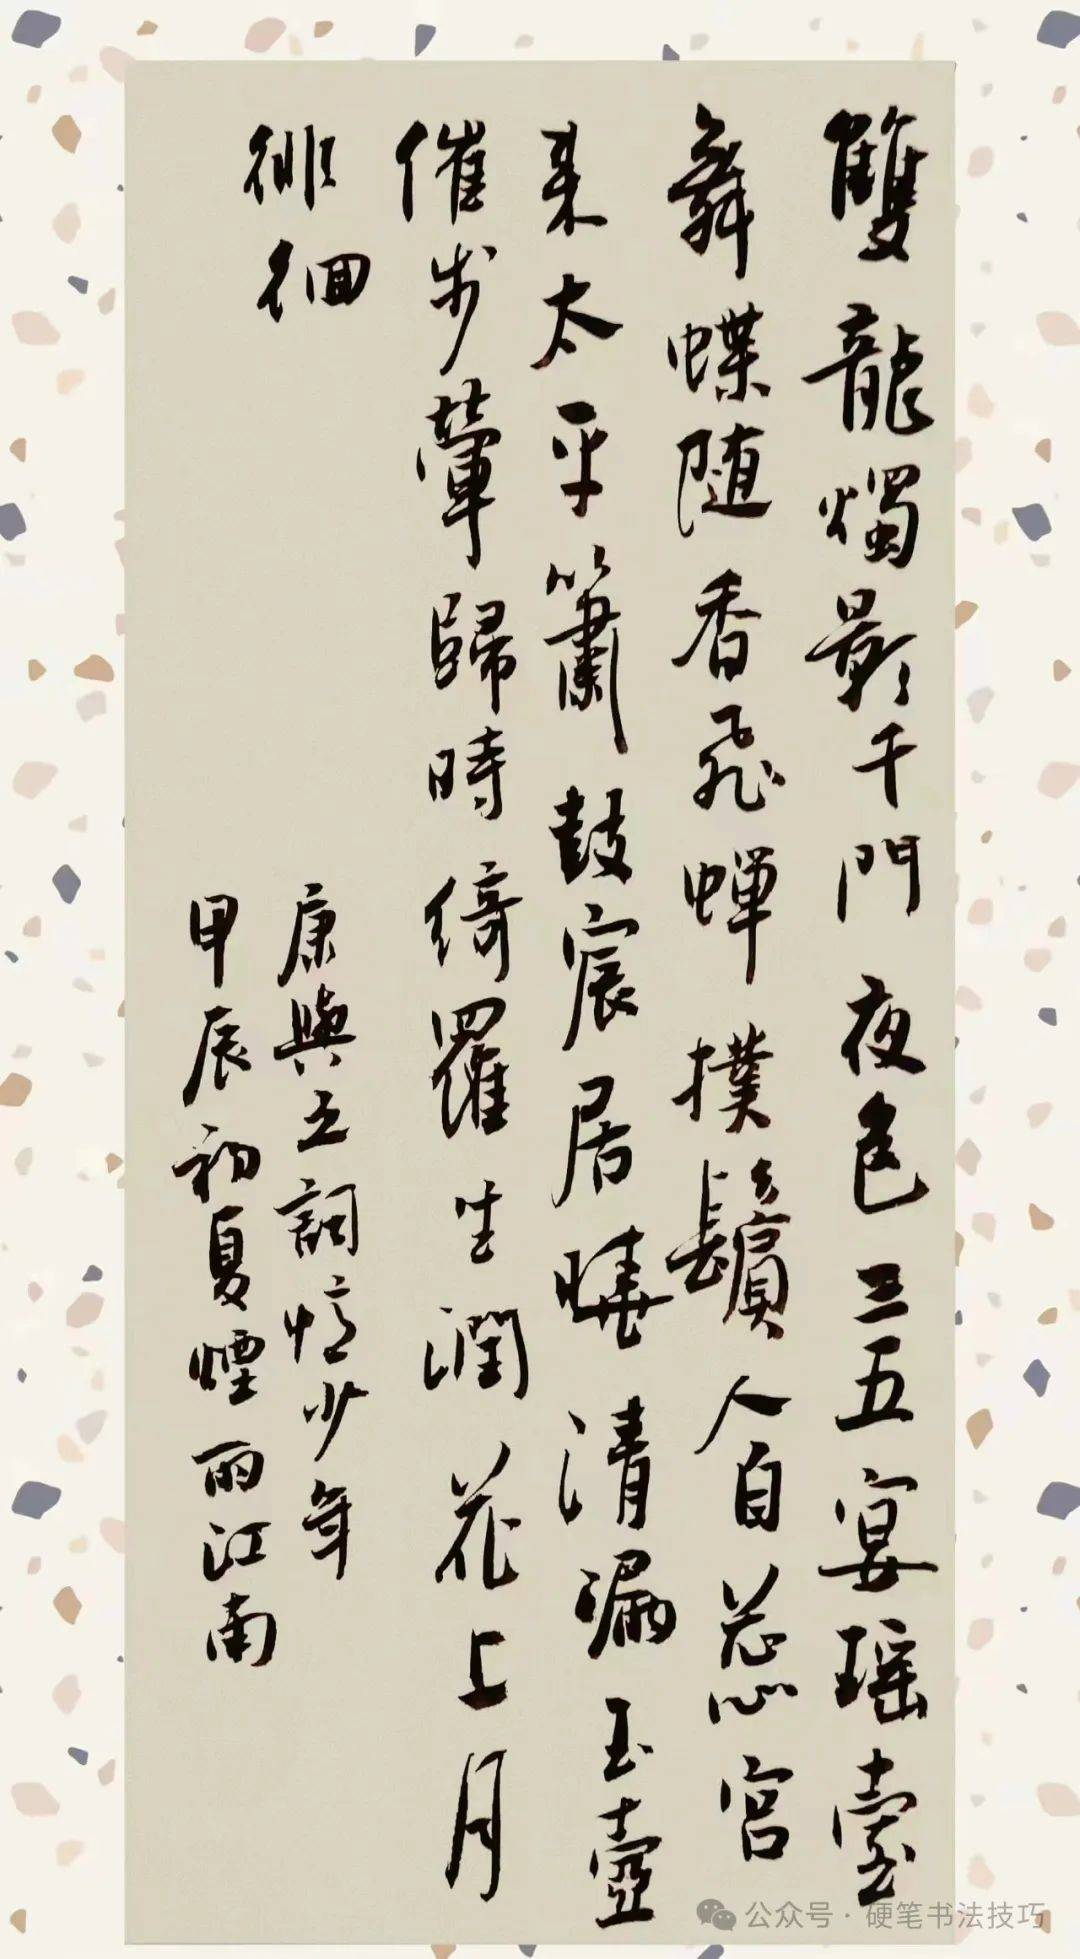 雙龍燭影千門夜色三五宴瑶臺
舞蝶随香飛蟬撲鬢人自蕊宫
来太平簫鼓宸居曉清漏玉壺
催步輦歸時綺羅生潤花上月
徘徊
康與之詞憶少年
甲辰初夏煙雨江南
公众号·硬笔书法技巧